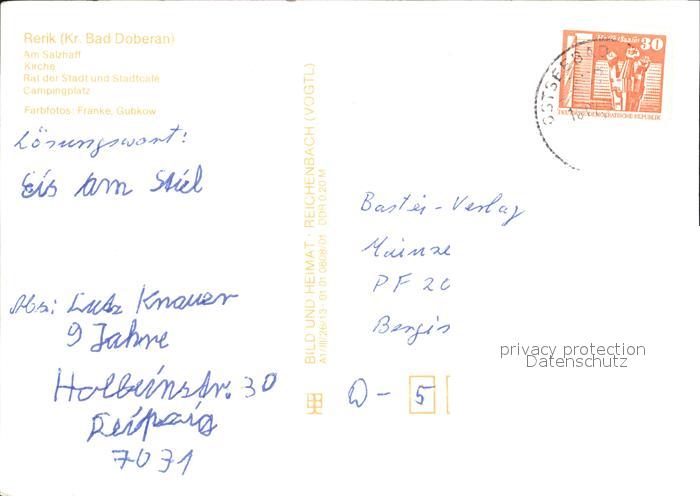 Rerik (Kr. Bad Doberan)
Am Salzhaff
Kirche
Rat der Stadt und Stadtcafé
Campingplatz
Farbfotos: Franke, Gubkow
Lösungswort:
Eis am Stiel
Abs: Lutz Knauer
9 Jahre
Holbeinstr. 30
Leipzig
7031
BILD UND HEIMAT · REICHENBACH (VOGTL)
A1/III/26/13 - 01 01 0608/01 DDR 0,20 M
OSTSEEBAD
30
DEUTSCHE DEMOKRATISCHE REPUBLIK
Bastei-Verlag
PF 20
D - 5
privacy protection
Datenschutz